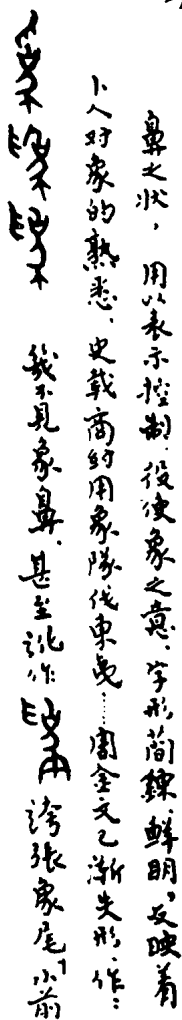 鼻之状，用以表示控制、役使象之意。字形简鍊、鲜明，反映着
卜人对象的熟悉。史载商纣用象队伐东夷……周金文已渐失形，作：
几不见象鼻，甚至讹作 誇张象尾。小前